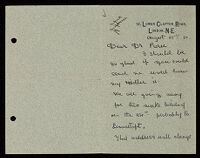 LOWER CLAPTON ROAD,
LONDON. N.E.
August
Dear Dr
I should be
so glad if you could
send me word how
my Mother is.
We are going away
for two weeks holiday
on the probably to
Lowestoft.
This address will always